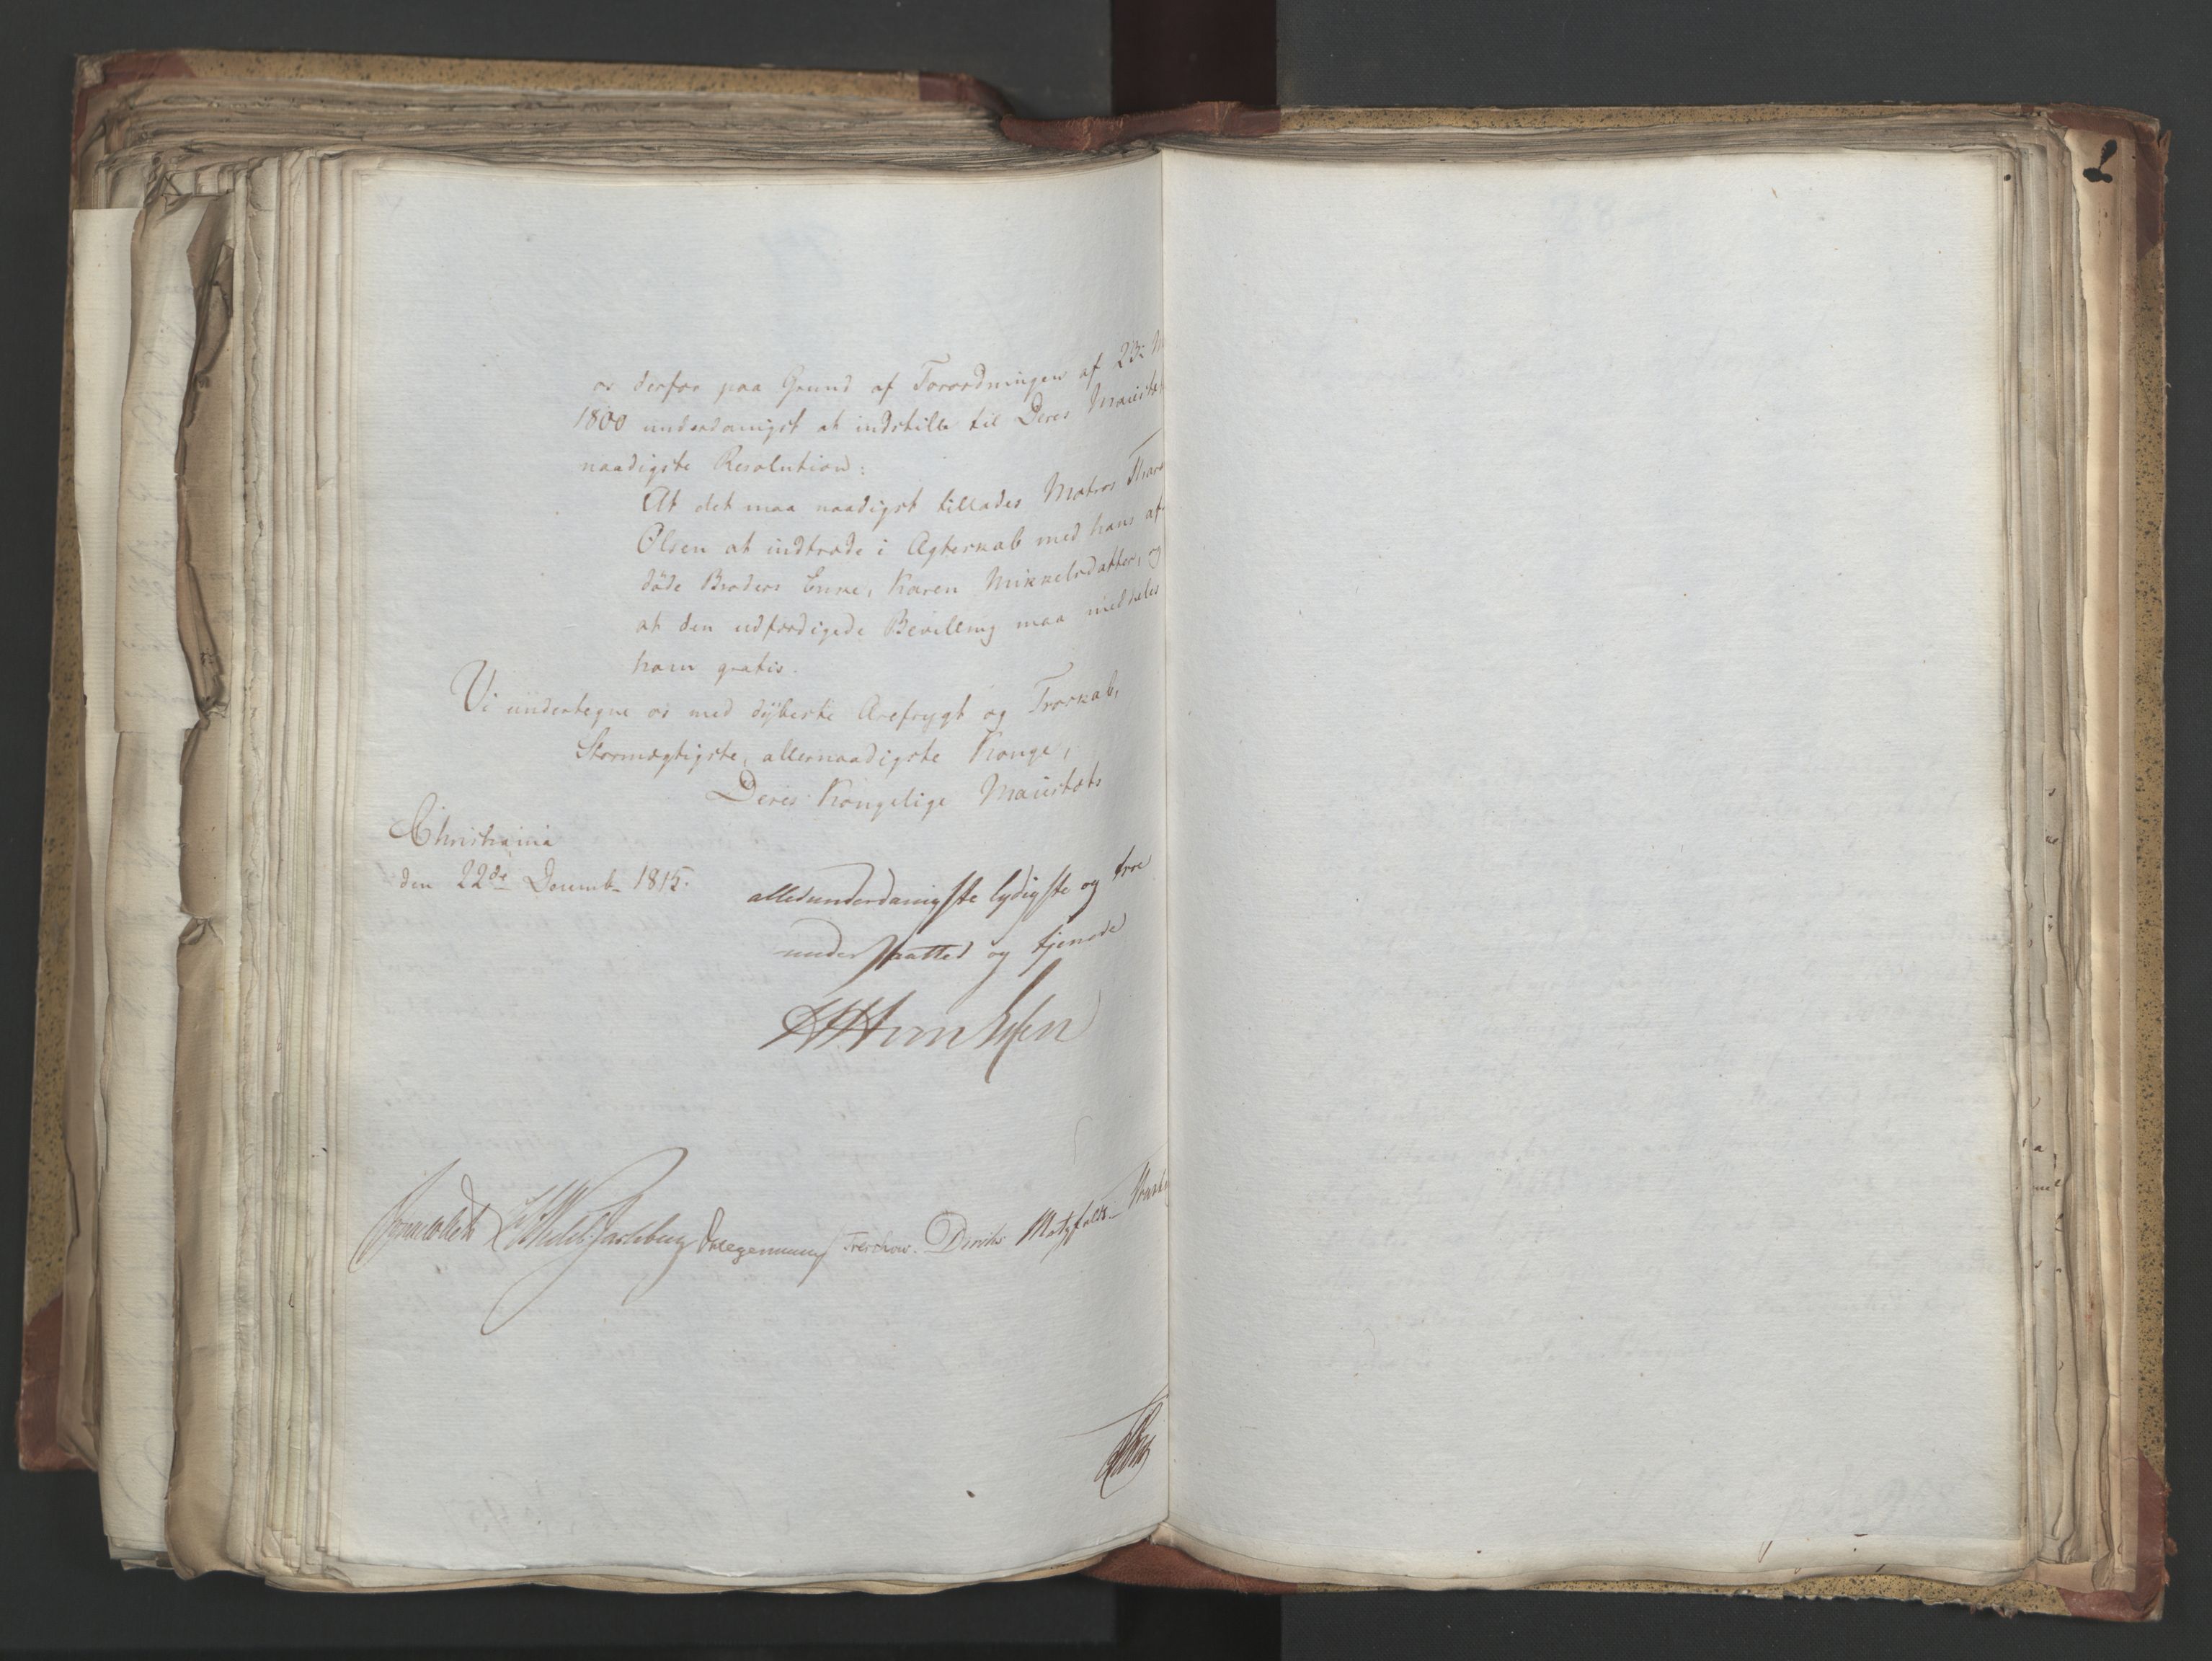 os derfor paa Grund af Forordningen af 23:
1800 underdanigst at indstille til Deres Maiestæts
naadigste Resolution:
At det maa naadigst tillades Matros
Olsen at indtræde i Ægteskab med hans af-
döde Broders Enke, Karen Mikkelsdatter, og
at den udfærdigede Bevilling maa meddeles
ham gratis.
Vi undertegne os med dÿbeste Ærefrygt og Troskab,
Stormægtigste, allernaadigste Konge,
Deres Kongelige Maiestæts
Christiania
den 22de Decemb. 1815.
allerunderdanigste lydigste og troe
undersaatter og tjenere
Sommerhielm Diriks Treschow.